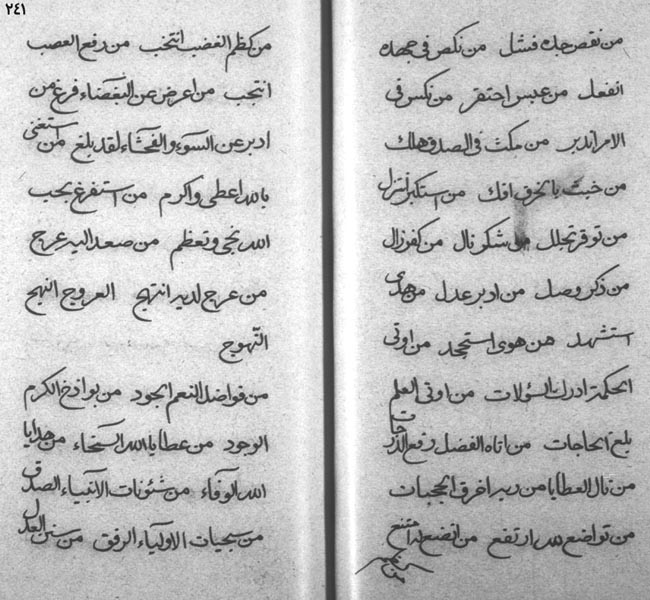 من نقص جده فشل من نكص فى جهده
انفعل من عبس احتقر من نكس فى
الامر اندبر من مكث فى الصدق هلك
من خبث بالخرق افك من استكبر انتزل
من توقر تجلل من شكر نال من كفر زال
من ذكر وصل من ادبر عدل من هدى
استشهد من هوى استمجد من اوتى
الحكمة ادرك السؤلات من اوتى العلم
بلغ الحاجات من اتاه الفضل رفع الدرجات
من نال العطايا من ربه اخرق الحجبات
من تواضع لله ارتفع من اتضع له امتنع
٢٤١
من كظم الغضب انتخب من رفع العصب
انتجب من اعرض عن البغضاء فرغ من
ادبر عن السوء و الفحشاء لقد بلغ من استغنى
بالله اعطى و اكرم من استفرغ بحب
الله نجى و تعظم من صعد اليه عرج
من عرج لديه انتهج العروج النهج
النهوج
من فواضل النعم الجود من بواذخ الكرم
الوجود من عطايا الله السخاء من هدايا
الله الوفاء من شئونات الانبياء الصدق
من سجيات الاولياء الرفق من سنن العدل